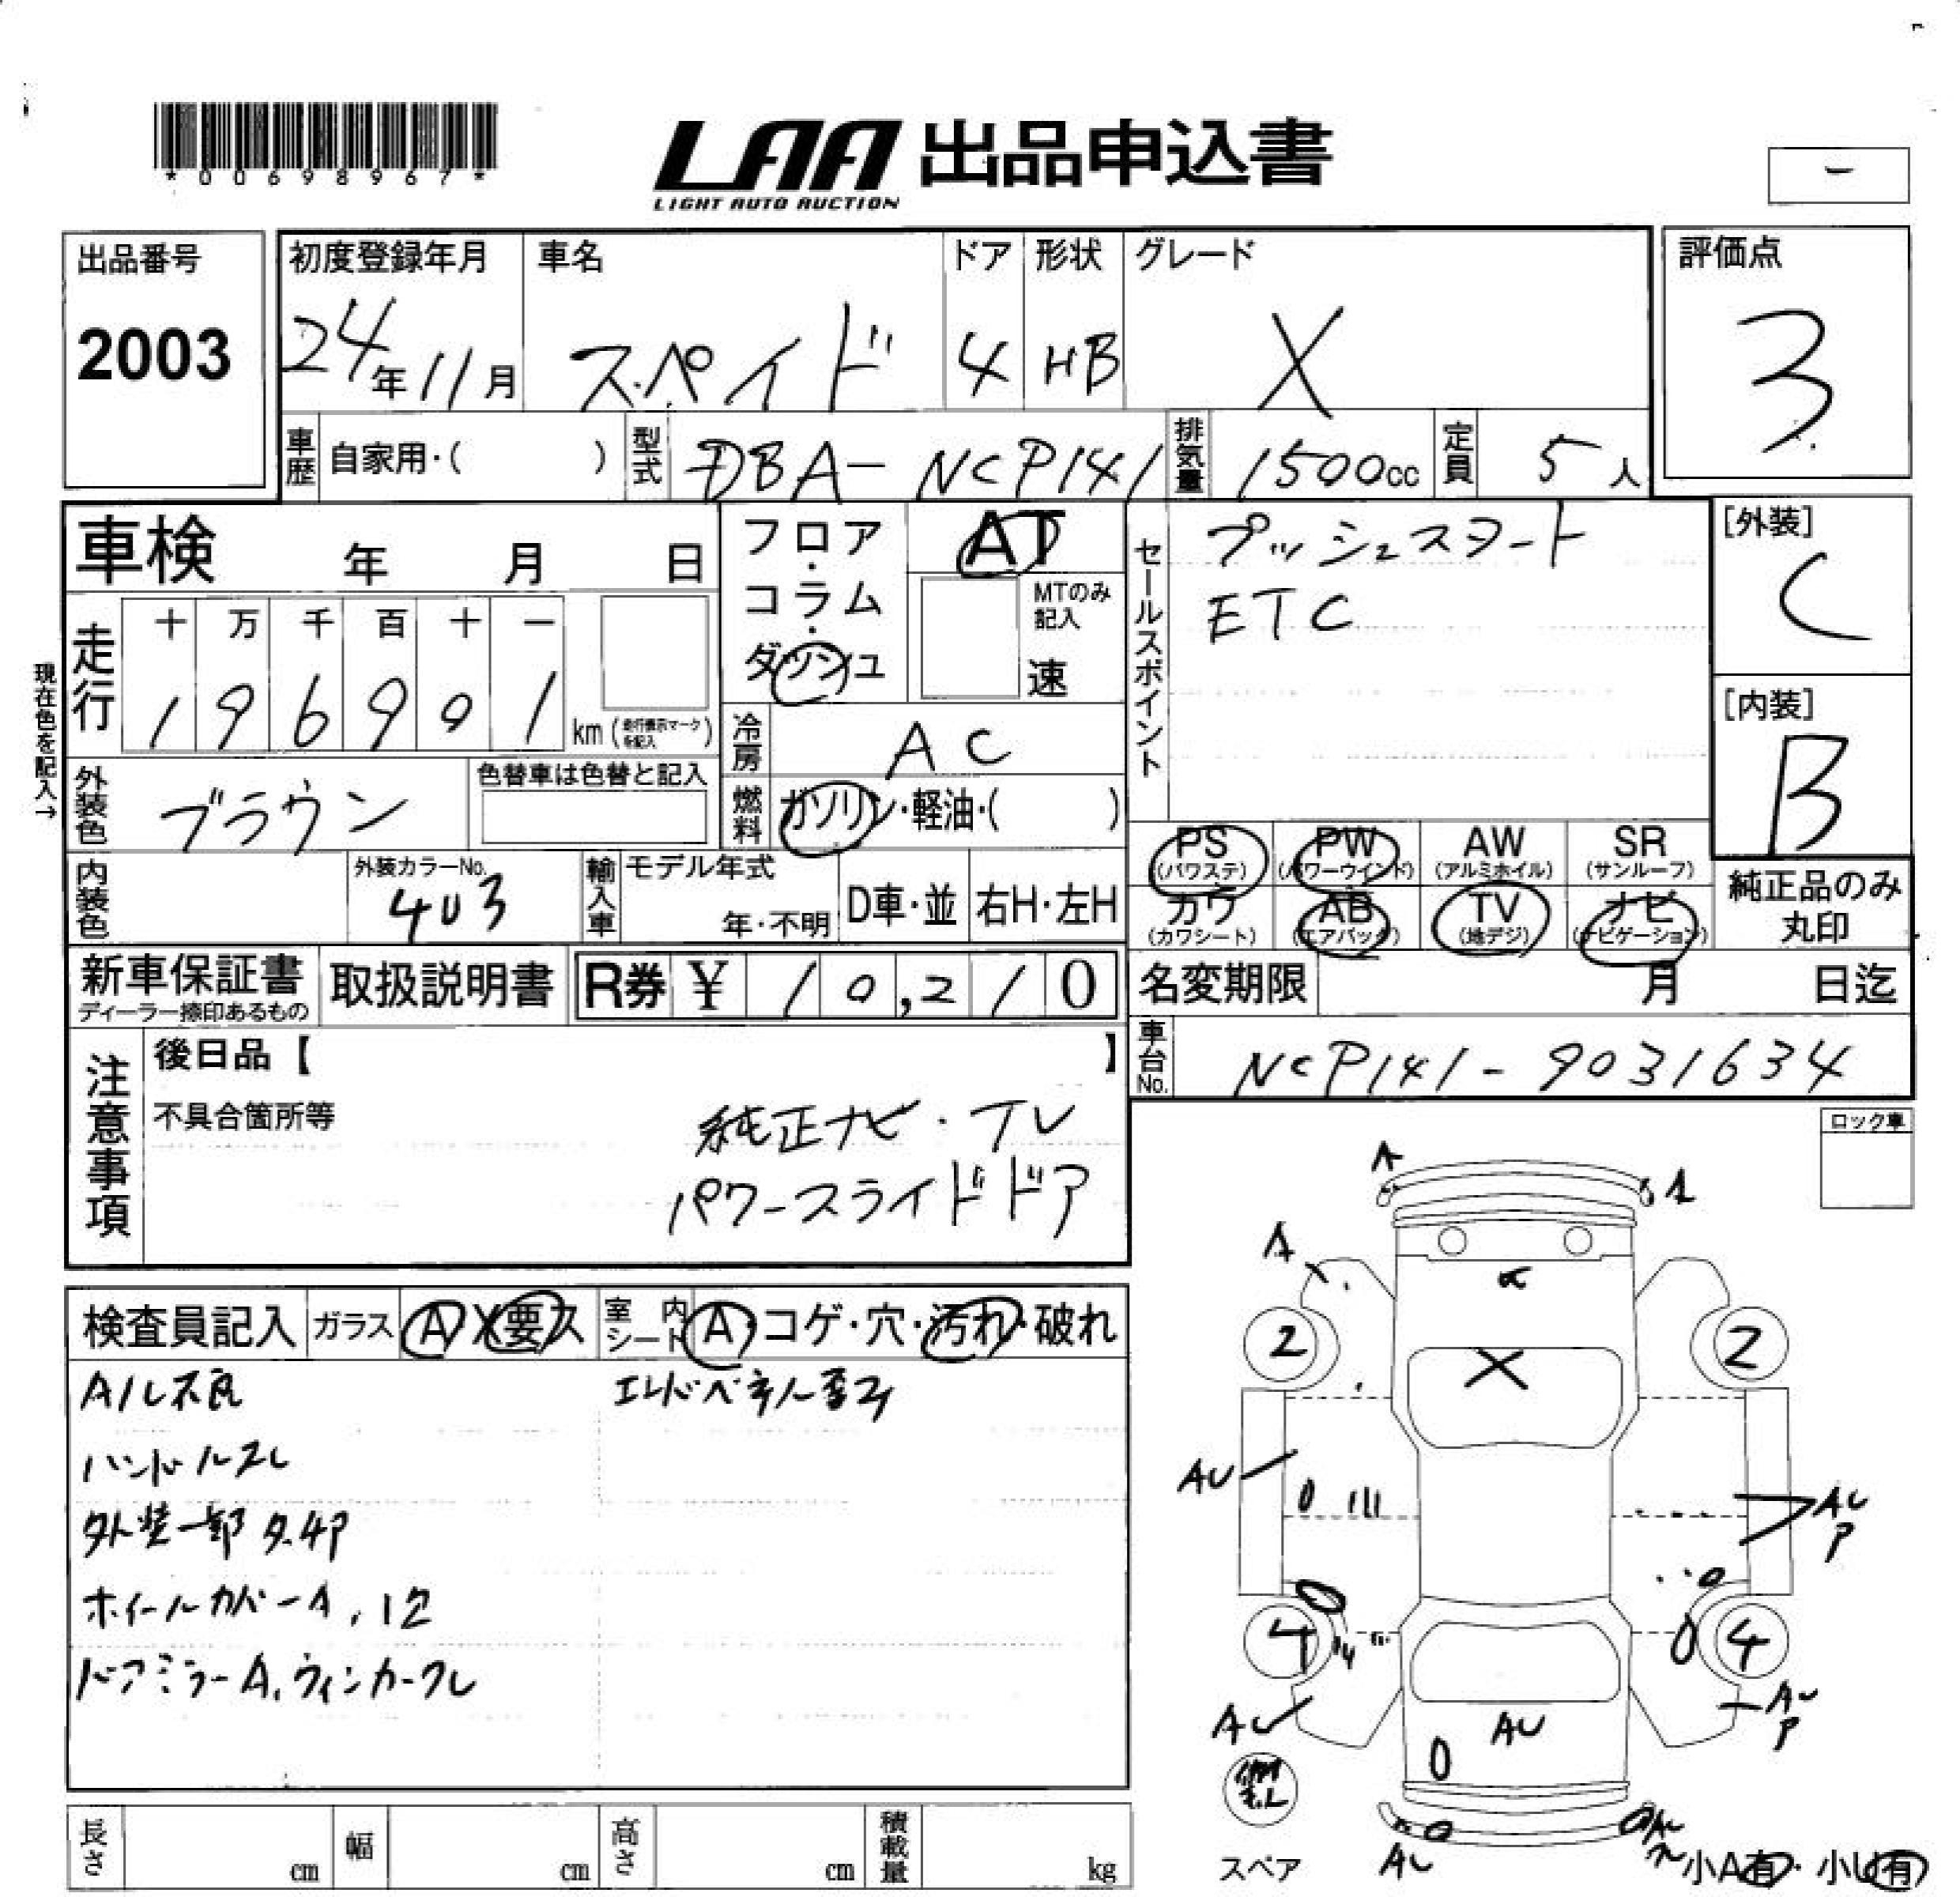 *00698967*
LAA 出品申込書
LIGHT AUTO AUCTION
ー
出品番号
2003
初度登録年月
24年11月
車名
スペイド
ドア
4
形状
HB
グレード
X
評価点
3
車歴 自家用・( )
型式 DBA-NCP141
排気量 1500cc
定員 5人
車検 年 月 日
フロア・コラム・ダッシュ
AT
MTのみ記入
速
セールスポイント
プッシュスタート
ETC
[外装]
C
[内装]
B
現在色を記入→
走行
十 万 千 百 十 一
196901
km (走行表示マークを記入)
冷房 AC
外装色 ブラウン
色替車は色替と記入
燃料 ガソリン・軽油・( )
PS (パワステ)
PW (パワーウインド)
AW (アルミホイル)
SR (サンルーフ)
カワ (カワシート)
AB (エアバッグ)
TV (地デジ)
ナビ (ナビゲーション)
純正品のみ丸印
内装色
外装カラーNo.
403
輸入車
モデル年式
年・不明
D車・並
右H・左H
新車保証書
ディーラー捺印あるもの
取扱説明書
R券 ¥ 10,210
名変期限 月 日迄
車台No. NCP141-9031634
注意事項
後日品【 】
不具合箇所等
純正ナビ・TV
パワースライドドア
ロック車
検査員記入
ガラス A X 要ス
室内シート A・コゲ・穴・汚れ・破れ
A/L不良
ハンドルスレ
外装一部タ、凹
ホイールカバーA,1欠
ドアミラーA、ウィンカークレ
A
A
A
2
2
X
AU
AU
P
4
4
AU
AU
AU
P
AU
スペア
小A有・小U有
長さ cm
幅 cm
高さ cm
積載量 kg